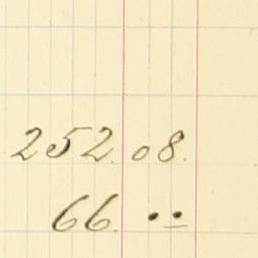 252.08.
66. ..